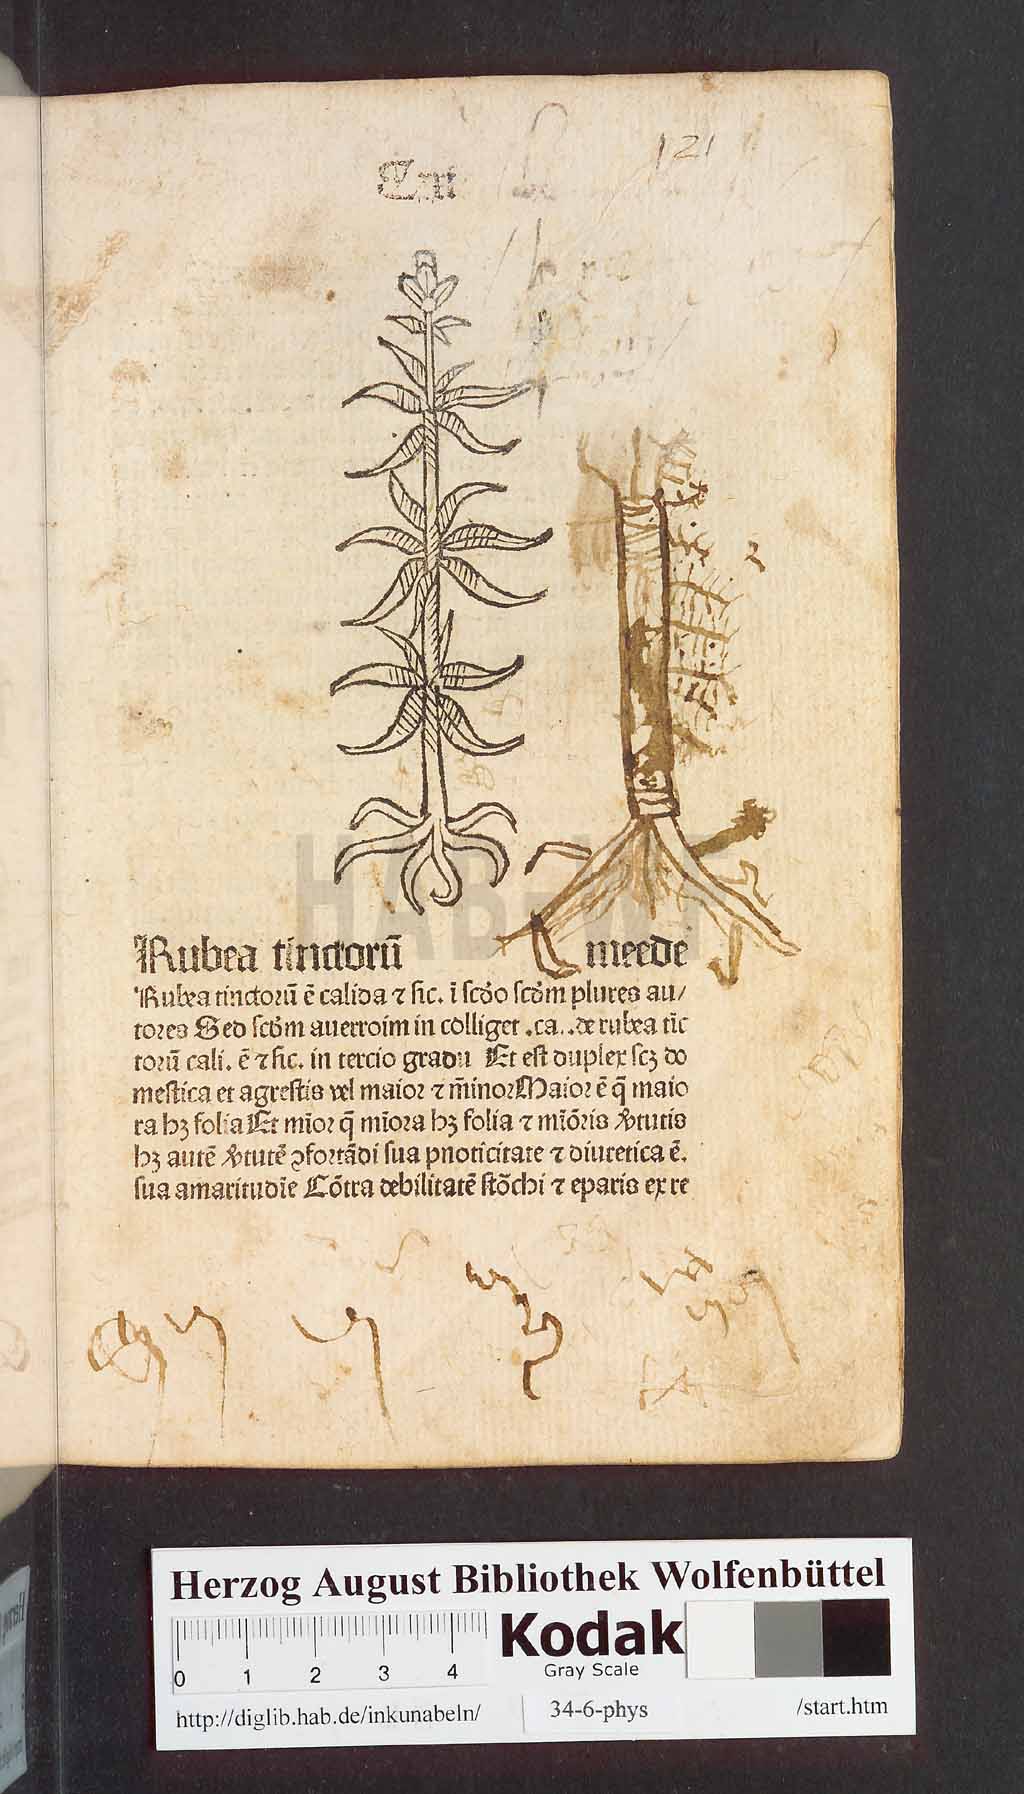 121
Rubea tinctorū meede
Rubea tinctorū ē calida ⁊ sic. ī scd̄o scd̄m plures au/
tores Sed scd̄m auerroim in colliget .ca. .de rubea tīc
torū cali. ē ⁊ sic. in tercio gradu Et est duplex scꝫ do
mestica et agrestis vel maior ⁊ m̄inor Maior ē q̄ maio
ra hꝫ folia Et mīor q̄ mīora hꝫ folia ⁊ mīōris v̄tutis
hꝫ autē v̄tutē ꝯfortādi sua pnoticitate ⁊ diuretica ē.
sua amaritudīe Cōtra debilitatē stōchi ⁊ eparis ex re
Herzog August Bibliothek Wolfenbüttel
0 1 2 3 4
Kodak
Gray Scale
http://diglib.hab.de/inkunabeln/ 34-6-phys /start.htm